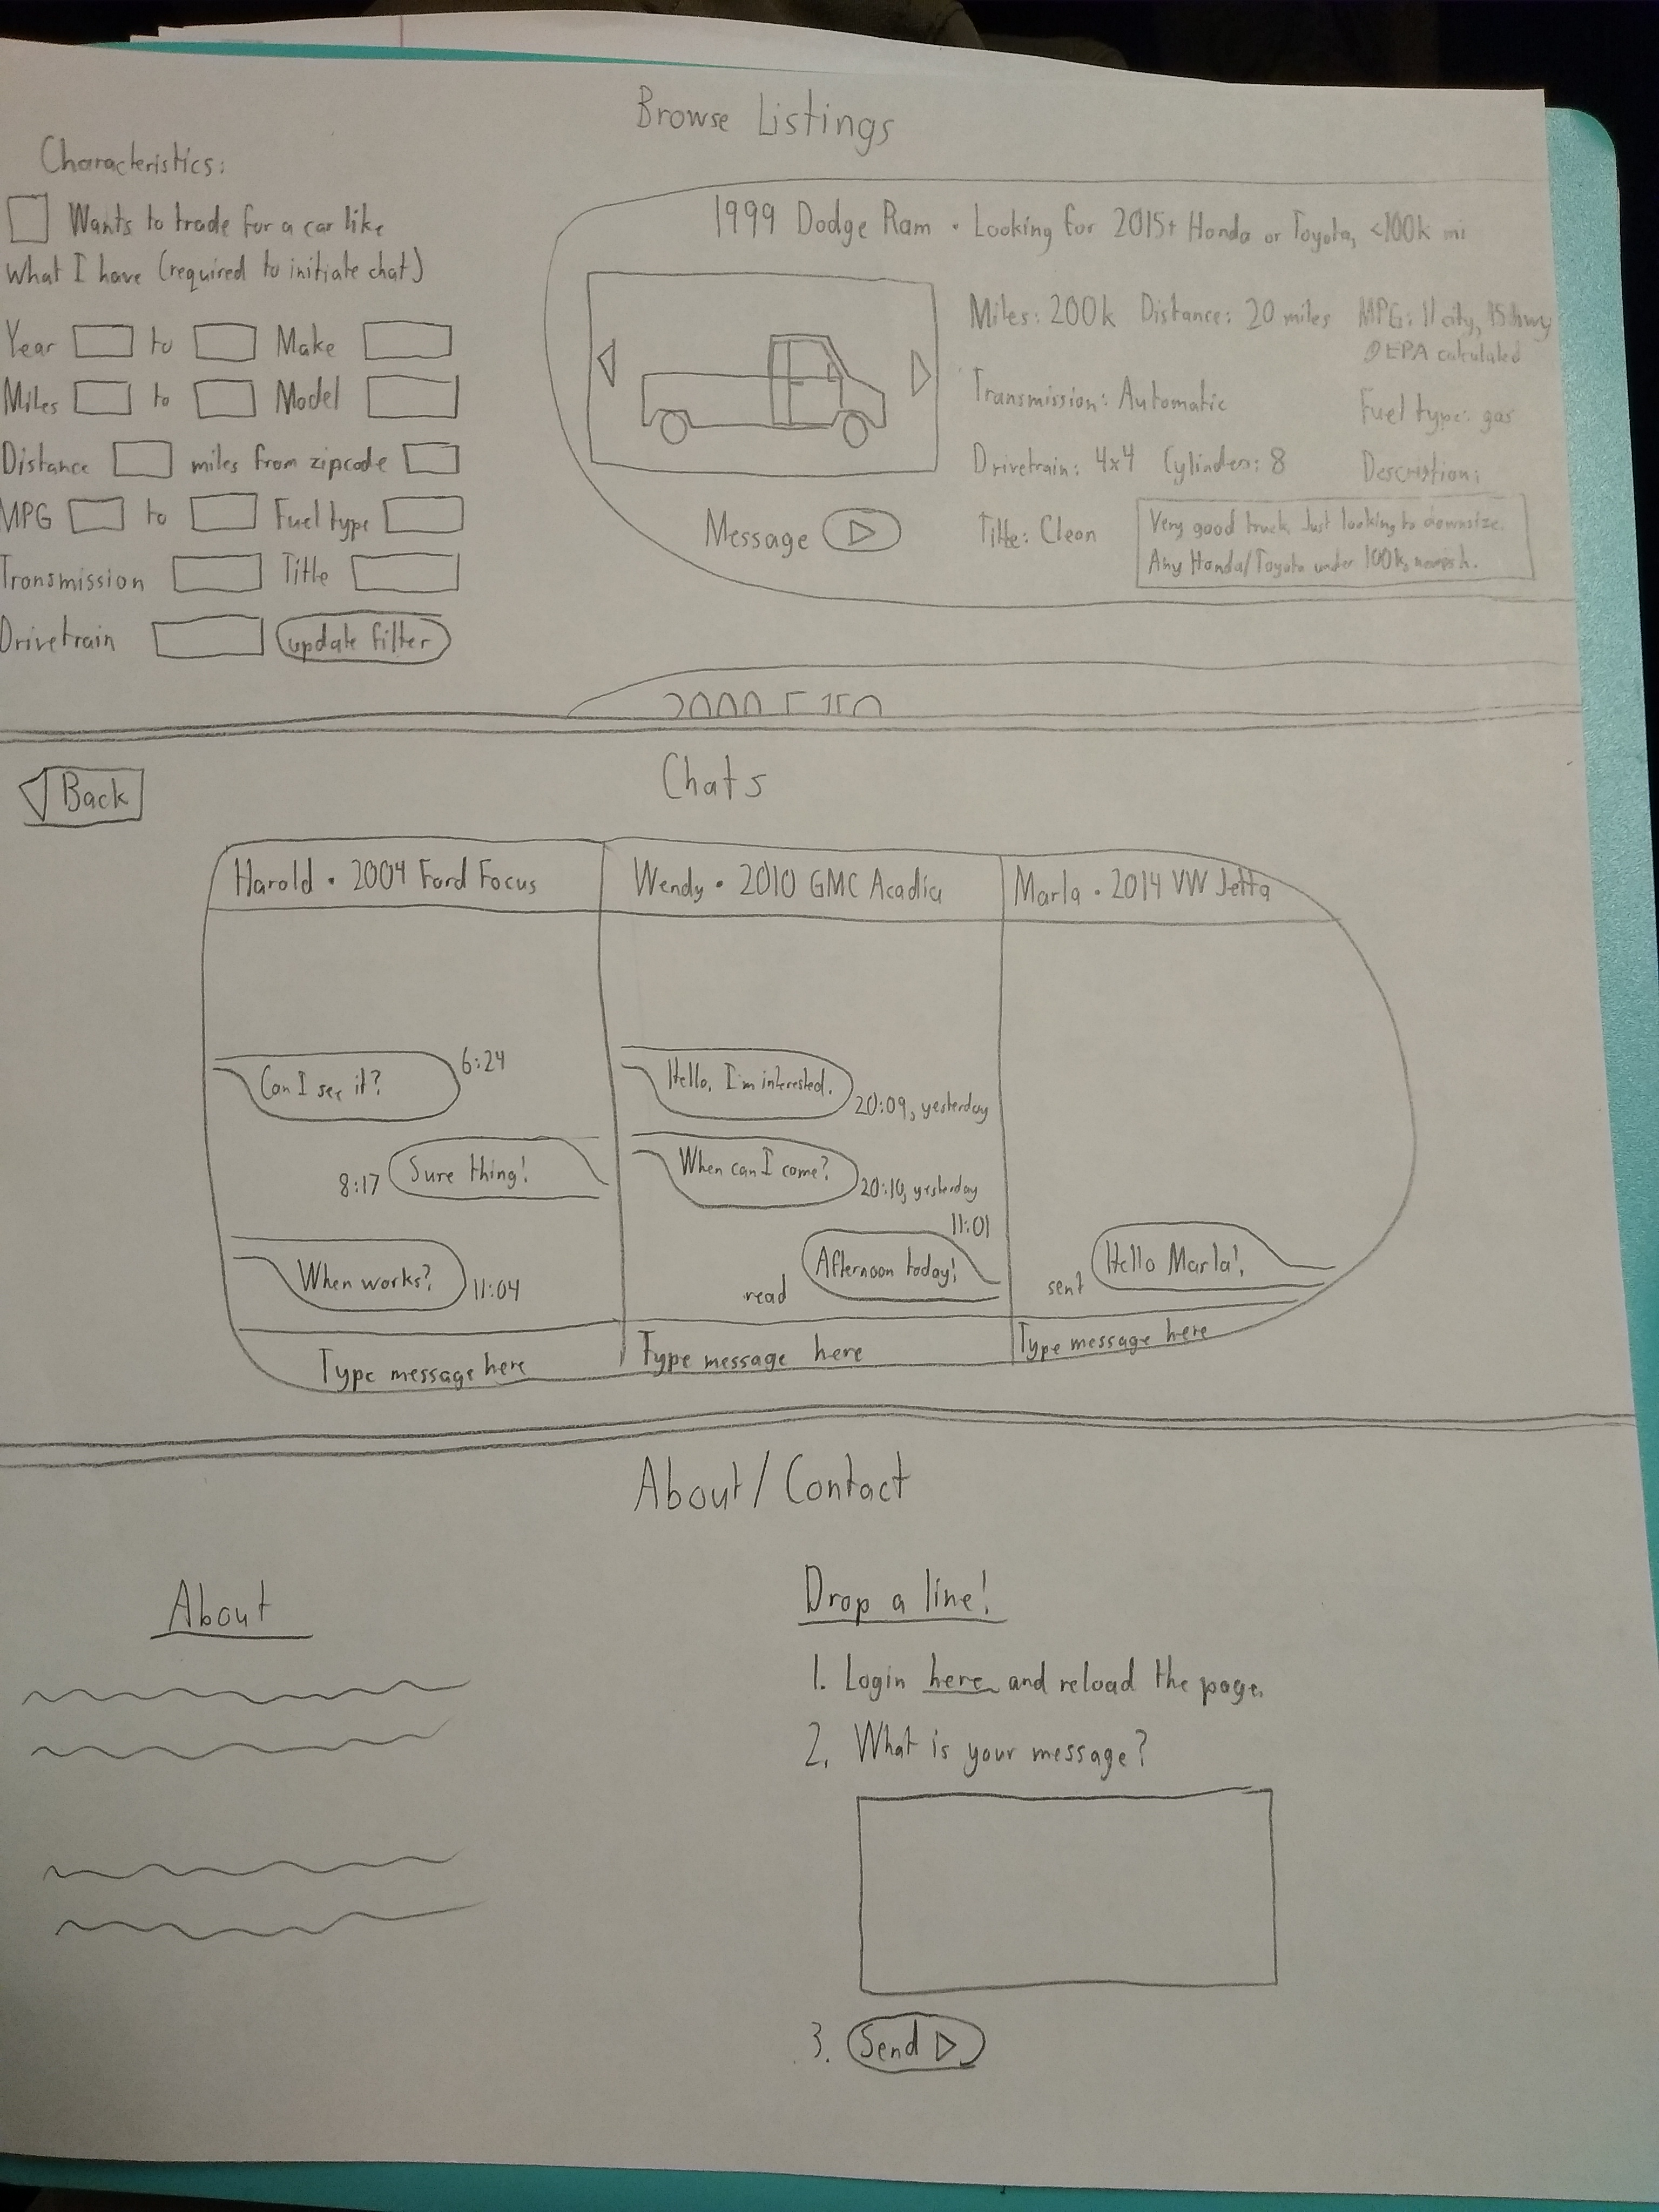 Browse Listings
Characteristics:
Wants to trade for a car like
what I have (required to initiate chat)
Year to Make
Miles to Model
Distance miles from zipcode
MPG to Fuel type
Transmission Title
Drivetrain update filter
1999 Dodge Ram • Looking for 2015+ Honda or Toyota, <100k mi
Miles: 200k Distance: 20 miles MPG: 11 city, 15 hwy
EPA calculated
Transmission: Automatic
Fuel type: gas
Drivetrain: 4x4 Cylinders: 8
Description:
Message
Title: Clean
Very good truck. Just looking to downsize.
Any Honda/Toyota under 100k,
2000 F150
Back
Chats
Harold • 2004 Ford Focus
Can I see it? 6:24
8:17 Sure thing!
When works? 11:04
Type message here
Wendy • 2010 GMC Acadia
Hello, I'm interested.
20:09, yesterday
When can I come?
20:10, yesterday
11:01
Afternoon today!
read
Type message here
Marla • 2014 VW Jetta
Hello Marla!
sent
Type message here
About/Contact
About
Drop a line!
1. Login here and reload the page.
2. What is your message?
3. Send